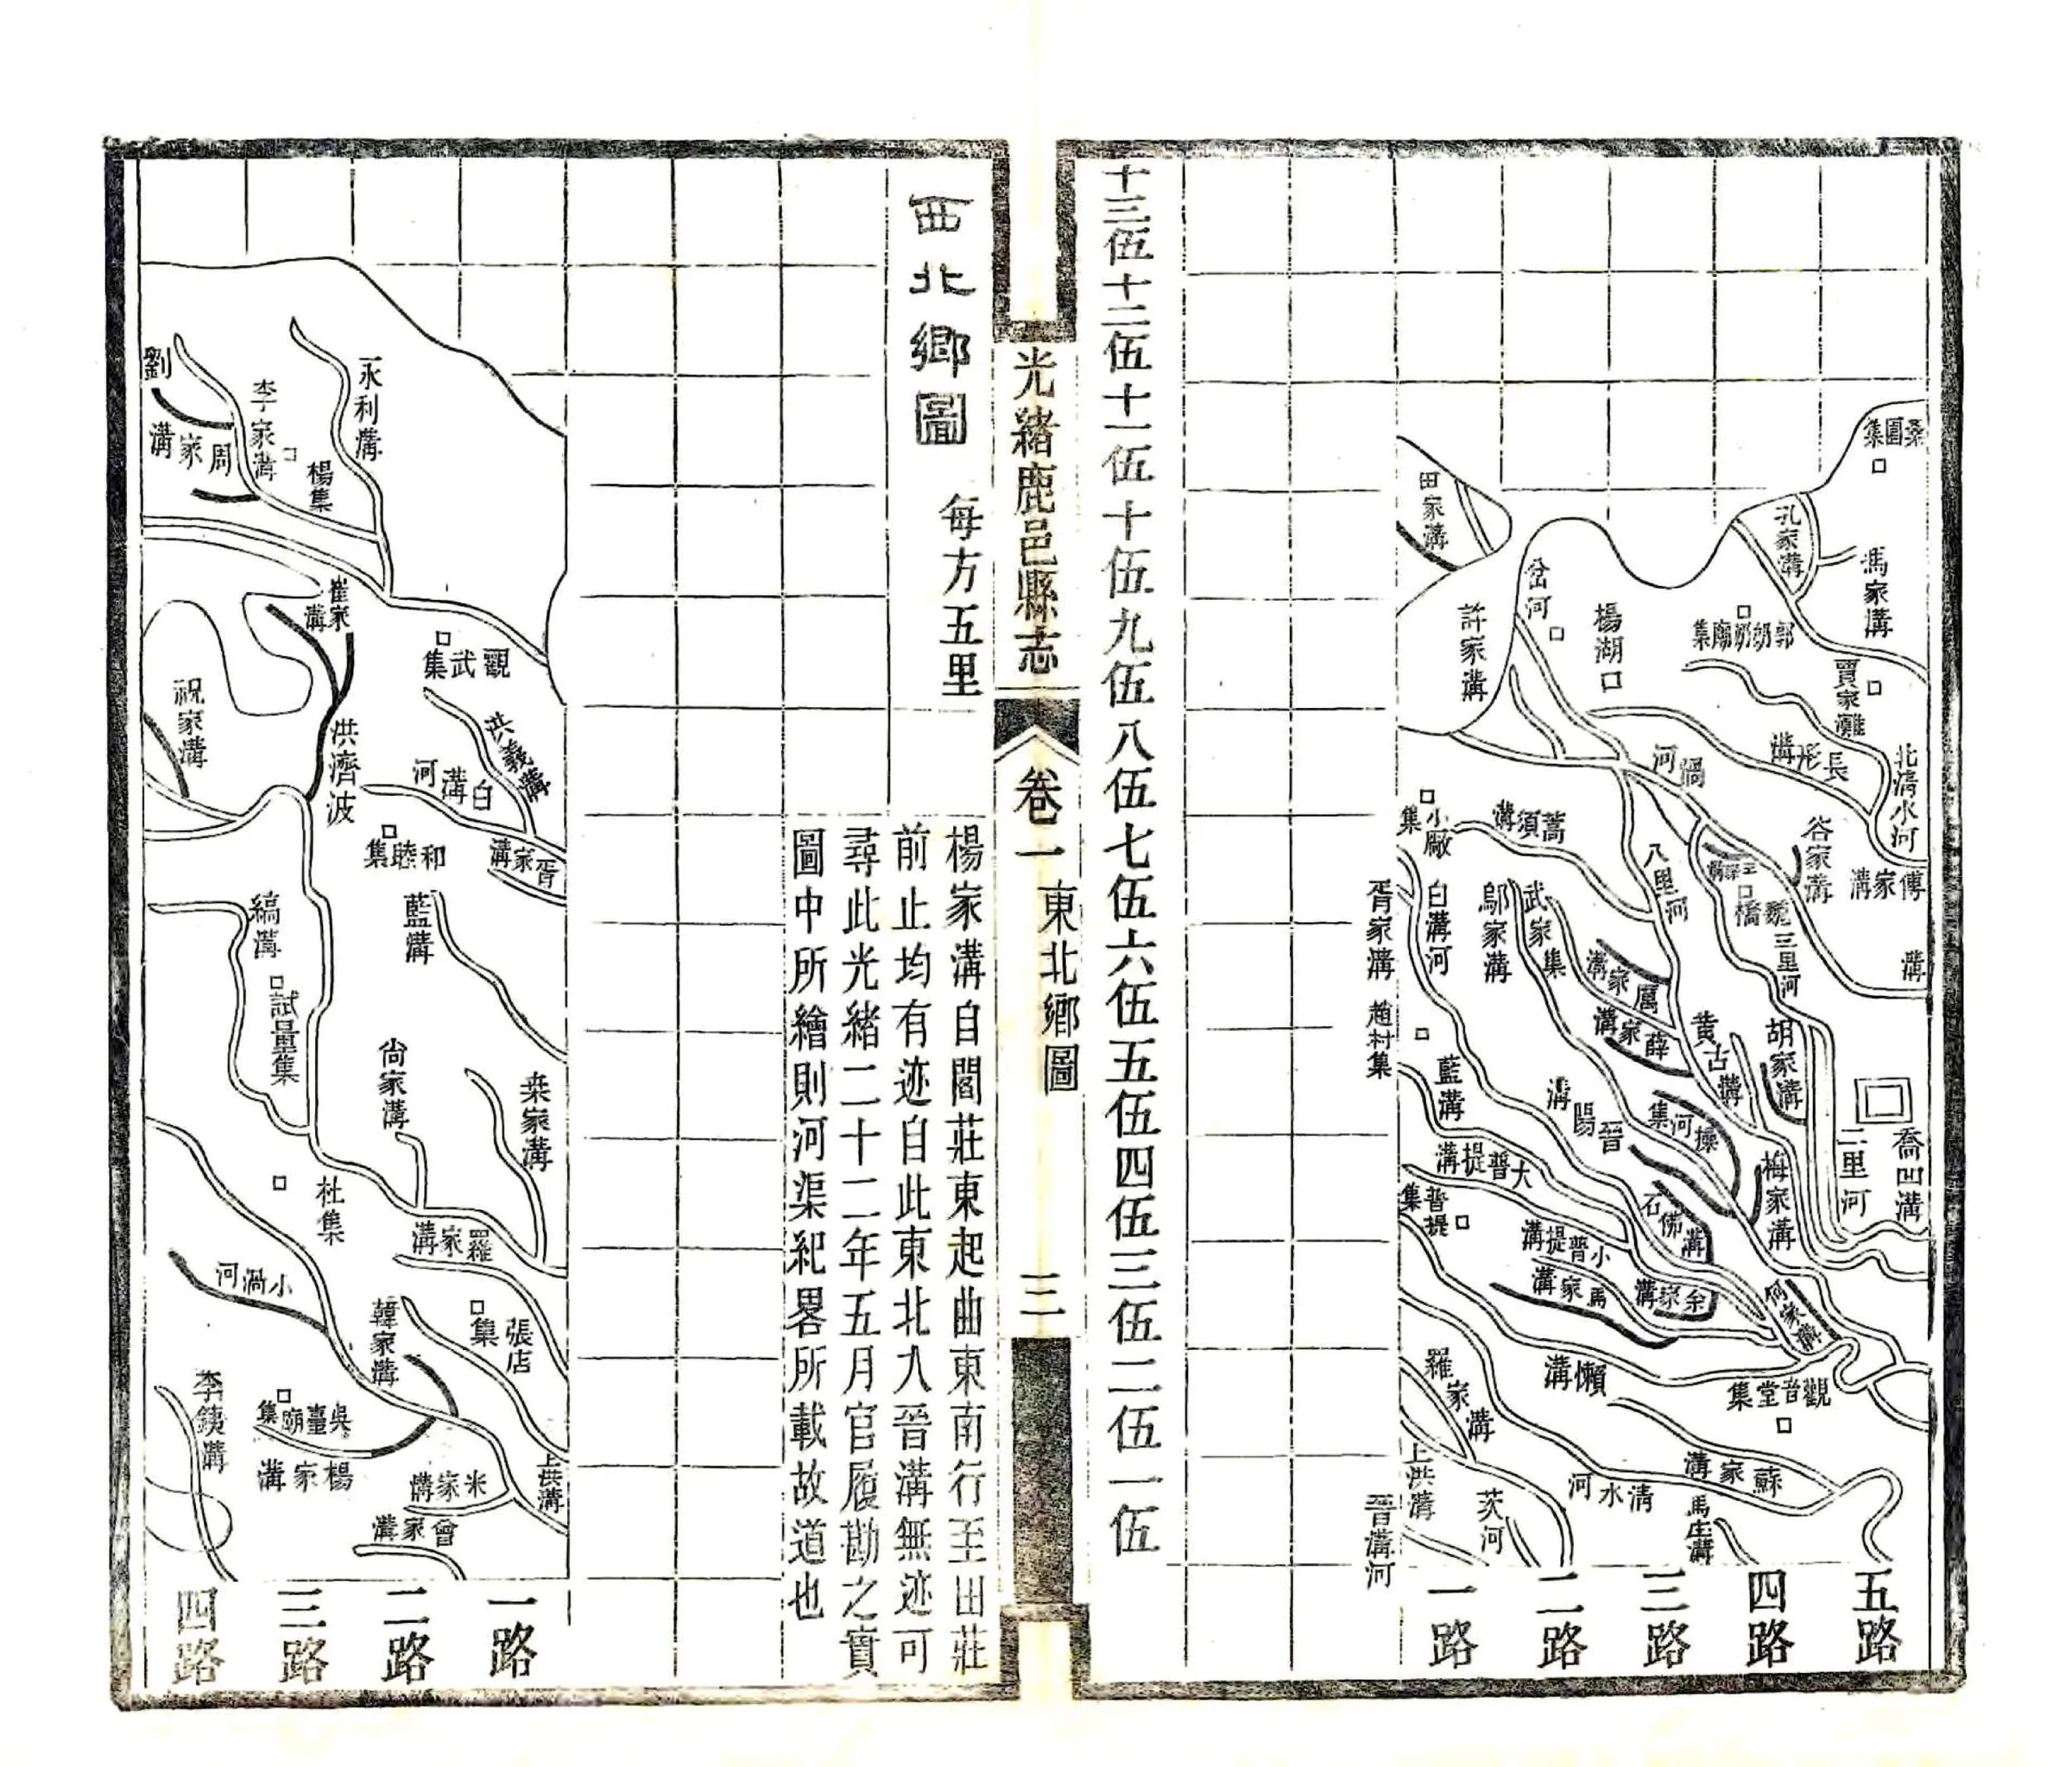 桑園集
孔家溝
馮家溝
田家溝
岔河
楊湖
郭奶奶廟集
許家溝
賈家灘
長形溝
北清水河
渦河
小廠集
蒿須溝
八里河
谷家溝
傅家溝
魏橋
三里河
溝
白溝河
胥家溝
趙村集
鄔家溝
武家集
厲家溝
薛家溝
黄古溝
胡家溝
藍溝
晉陽溝
操河集
梅家溝
二里河
喬凹溝
大普提溝
普提集
石佛溝
小普提溝
馬家溝
余家溝
何家溝
羅家溝
懶溝
觀音堂集
蘇家溝
清水河
上洪溝
茨河
馬生溝
晉溝河
五路
四路
三路
二路
一路
十三伍十二伍十一伍十伍九伍八伍七伍六伍五伍四伍三伍二伍一伍
光緒鹿邑縣志
卷一
東北鄉圖
三
西北鄉圖
每方五里
楊家溝自閻莊東起曲東南行至田莊
前止均有迹自此東北入晉溝無迹可
尋此光緒二十二年五月官履勘之實
圖中所繪則河渠紀畧所載故道也
永利溝
李家溝
劉
周家溝
楊集
崔家溝
觀武集
祝家溝
洪濟波
洪義溝
白溝河
和睦集
胥家溝
縞溝
藍溝
試量集
尙家溝
桒家溝
杜集
羅家溝
小渦河
張店集
韓家溝
李銕溝
吳臺廟集
楊家溝
米家溝
上洪溝
曾家溝
一路
二路
三路
四路